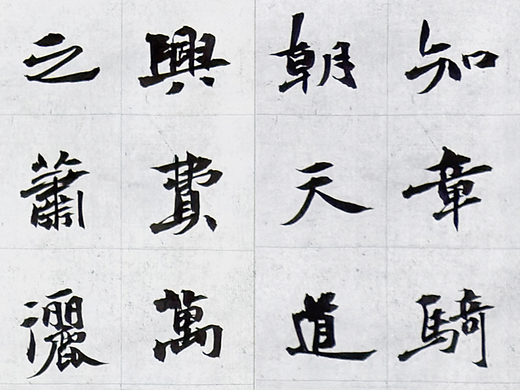 知章騎
朝天道
興費萬
之蕭灑